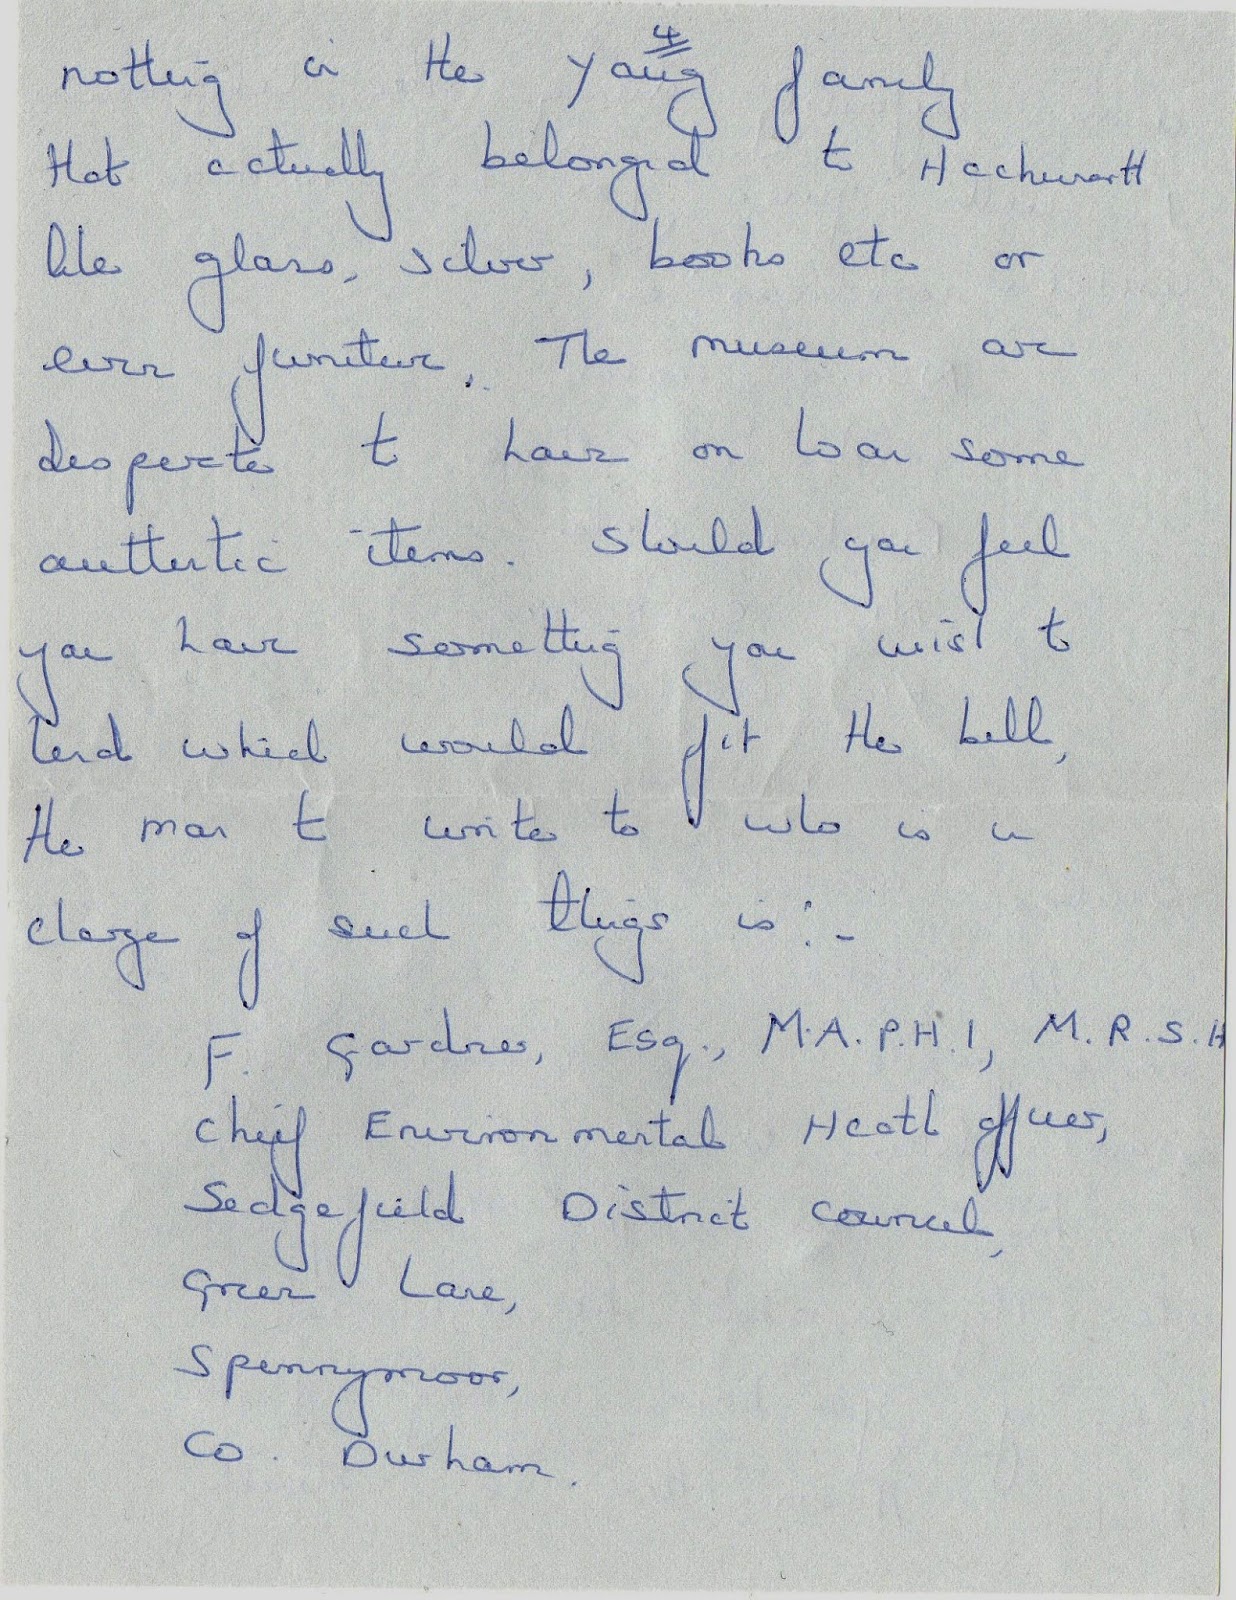 4
nothing in the Young family
that actually belonged to Hackworth
like glass, silver, books etc or
even furniture. The museum are
desperate to have on loan some
authentic items. Should you feel
you have something you wish to
lend which would fit the bill,
the man to write to who is in
charge of such things is:-
F. Gardner, Esq., M.A.P.H.I, M.R.S.H
Chief Environmental Health Officer,
Sedgefield District Council,
Green Lane,
Spennymoor,
Co. Durham.